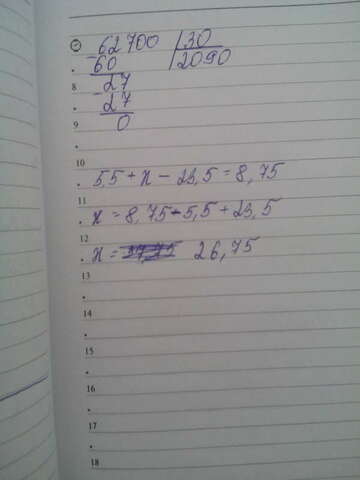 62700 | 30
60 | 2090
8 - 27
27
9 0
10
5,5 + x - 23,5 = 8,75
11
x = 8,75 - 5,5 + 23,5
12
x = 26,75
13
14
15
16
17
18